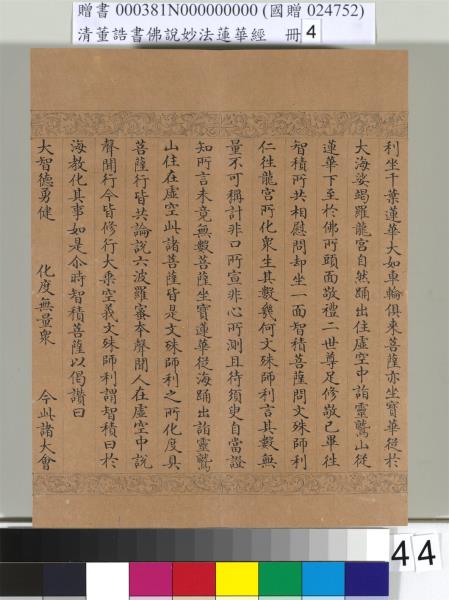 贈書 000381N000000000 (國贈 024752)
清董誥書佛說妙法蓮華經 冊 4
利坐千葉蓮華大如車輪俱來菩薩亦坐寶華從於
大海娑竭羅龍宮自然踊出住虛空中詣靈鷲山從
蓮華下至於佛所頭面敬禮二世尊足修敬已畢往
智積所共相慰問却坐一面智積菩薩問文殊師利
仁往龍宮所化衆生其數幾何文殊師利言其數無
量不可稱計非口所宣非心所測且待須臾自當證
知所言未竟無數菩薩坐寶蓮華從海踊出詣靈鷲
山住在虛空此諸菩薩皆是文殊師利之所化度具
菩薩行皆共論說六波羅蜜本聲聞人在虛空中說
聲聞行今皆修行大乘空義文殊師利謂智積曰於
海教化其事如是尒時智積菩薩以偈讚曰
大智德勇健 化度無量衆 今此諸大會
44